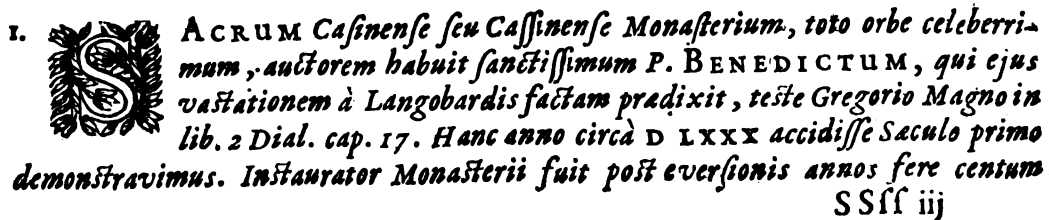 1. SACRUM Casinense seu Cassinense Monasterium, toto orbe celeberri-
mum, auctorem habuit sanctissimum P. BENEDICTUM, qui ejus
vastationem à Langobardis factam prædixit, teste Gregorio Magno in
lib. 2 Dial. cap. 17. Hanc anno circà D LXXX accidisse Sæculo primo
demonstravimus. Instaurator Monasterii fuit post eversionis annos fere centum
SSſſ iij